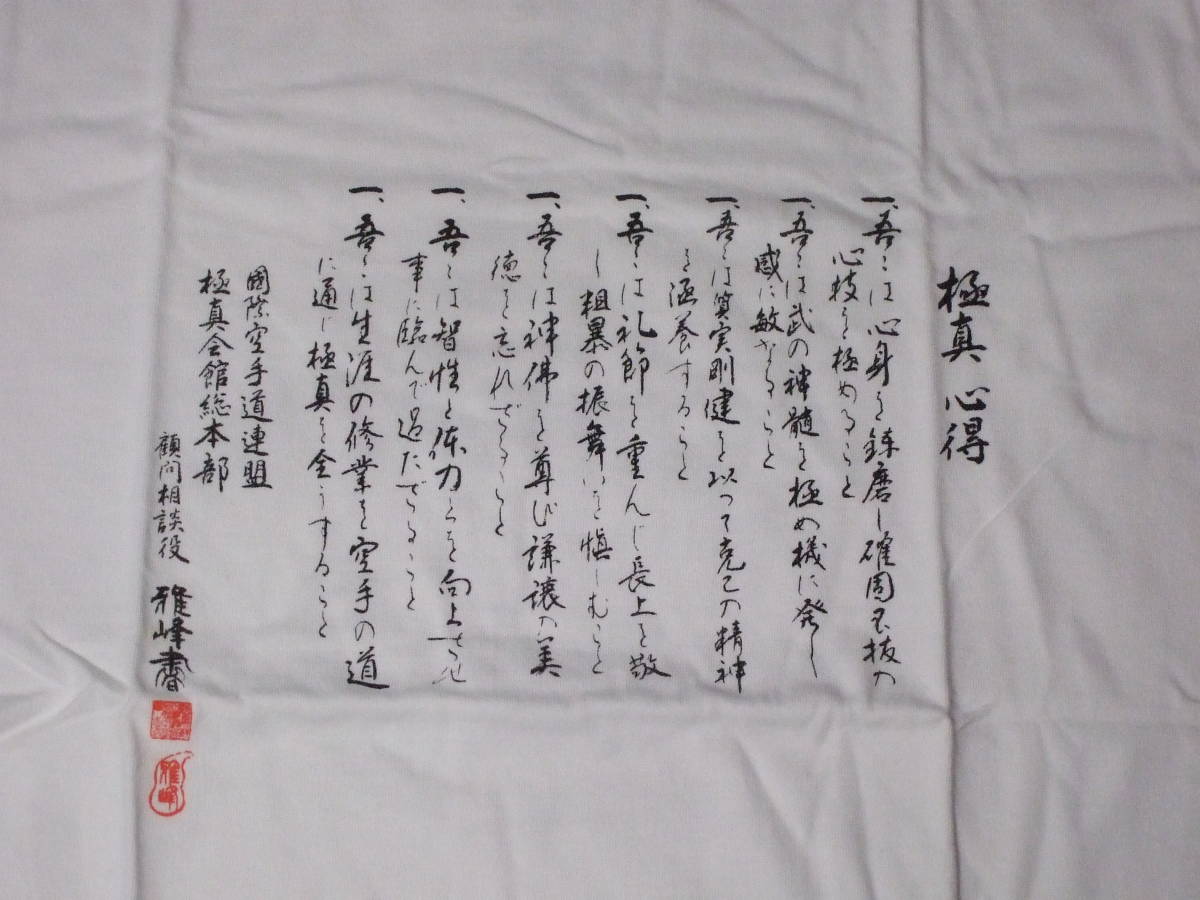 極真 心得
一、吾々は心身を錬磨し確固不抜の
心技を極めること
一、吾々は武の神髄を極め機に発し
感に敏なること
一、吾々は質実剛健を以って克己の精神
を涵養すること
一、吾々は礼節を重んじ長上を敬
し粗暴の振舞いを慎しむこと
一、吾々は神佛を尊び謙譲の美
徳を忘れざること
一、吾々は智性と体力とを向上させ
事に臨んで過たざること
一、吾々は生涯の修業を空手の道
に通じ極真を全うすること
國際空手道連盟
極真会館総本部
顧問相談役 雅峰書
雅峰